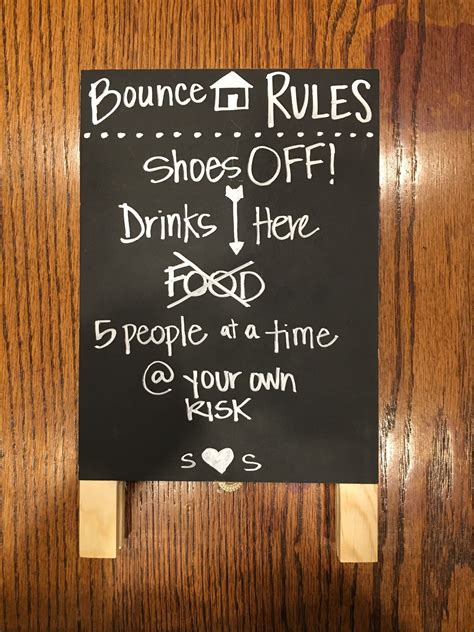 Bounce RULES
Shoes OFF!
Drinks Here
FOOD
5 people at a time
@ your own
RISK
S S